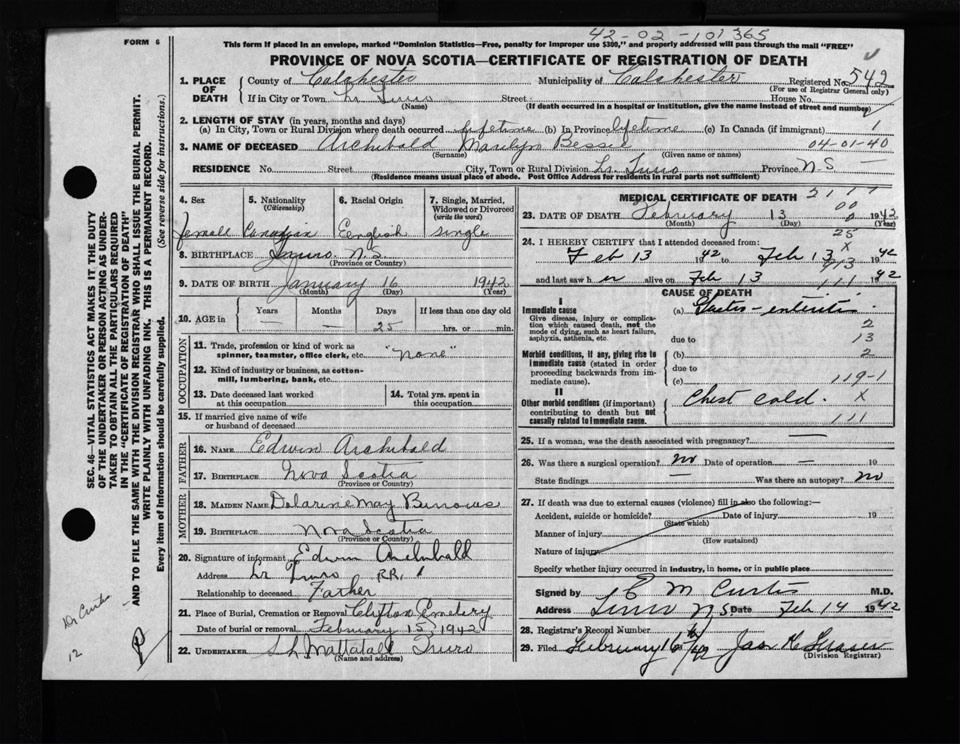 42-02-101365
FORM 6
This form if placed in an envelope, marked "Dominion Statistics—Free, penalty for improper use $300," and properly addressed will pass through the mail "FREE"
PROVINCE OF NOVA SCOTIA—CERTIFICATE OF REGISTRATION OF DEATH
1. PLACE OF DEATH
County of Colchester Municipality of Colchester Registered No. 542
(For use of Registrar General only)
If in City or Town Lr. Truro Street House No.
(Name) (If death occurred in a hospital or institution, give the name instead of street and number)
2. LENGTH OF STAY (in years, months and days)
(a) In City, Town or Rural Division where death occurred lifetime (b) In Province lifetime (c) In Canada (if immigrant) 1
3. NAME OF DECEASED Archibald Marilyn Bessie 04-01-40
(Surname) (Given name or names)
RESIDENCE No. Street City, Town or Rural Division Lr. Truro Province N.S.
(Residence means usual place of abode. Post Office Address for residents in rural parts not sufficient)
4. Sex
female
5. Nationality
(Citizenship)
Canadian
6. Racial Origin
English
7. Single, Married, Widowed or Divorced
(write the word)
single
8. BIRTHPLACE Truro N.S.
(Province or Country)
9. DATE OF BIRTH January 16 1942
(Month) (Day) (Year)
10. AGE in Years — Months — Days 25 If less than one day old
hrs. or min.
OCCUPATION
11. Trade, profession or kind of work as
spinner, teamster, office clerk, etc. "None"
12. Kind of industry or business, as cotton-
mill, lumbering, bank, etc.
13. Date deceased last worked
at this occupation
14. Total yrs. spent in
this occupation
15. If married give name of wife
or husband of deceased
FATHER
16. NAME Edwin Archibald
17. BIRTHPLACE Nova Scotia
(Province or Country)
MOTHER
18. MAIDEN NAME May Burrows
19. BIRTHPLACE Nova Scotia
(Province or Country)
20. Signature of informant Edwin Archibald
Address Lr Truro RR. 1
Relationship to deceased Father
21. Place of Burial, Cremation or Removal Clifton Cemetery
Date of burial or removal February 15, 1942
22. UNDERTAKER Mattatall Truro
(Name and address)
MEDICAL CERTIFICATE OF DEATH
00
23. DATE OF DEATH February 13 1942
(Month) (Day) (Year)
25
24. I HEREBY CERTIFY that I attended deceased from: X
Feb 13 1942 to Feb 13 1942
913
and last saw her alive on Feb 13 1942
111
CAUSE OF DEATH
I
Immediate cause
Give disease, injury or complication which caused death, not the mode of dying, such as heart failure, asphyxia, asthenia, etc.
(a) Gastro-enteritis
2
due to 13
Morbid conditions, if any, giving rise to immediate cause (stated in order proceeding backwards from immediate cause).
(b) 2
due to
(c) 119-1
II
Other morbid conditions (if important) contributing to death but not causally related to immediate cause.
Chest cold. X
111
25. If a woman, was the death associated with pregnancy? —
26. Was there a surgical operation? No Date of operation — 19
State findings Was there an autopsy? No
27. If death was due to external causes (violence) fill in also the following:—
Accident, suicide or homicide? Date of injury 19
(State which)
Manner of injury
(How sustained)
Nature of injury
Specify whether injury occurred in industry, in home, or in public place
Signed by E M Curtis M.D.
Address Truro N S Date Feb 14 1942
28. Registrar's Record Number
29. Filed February 16/42 Fraser
(Division Registrar)
SEC. 46—VITAL STATISTICS ACT MAKES IT THE DUTY
OF THE UNDERTAKER OR PERSON ACTING AS UNDER-
TAKER TO OBTAIN ALL THE PARTICULARS REQUIRED
IN THE "CERTIFICATE OF REGISTRATION OF DEATH"
AND TO FILE THE SAME WITH THE DIVISION REGISTRAR WHO SHALL ISSUE THE BURIAL PERMIT.
WRITE PLAINLY WITH UNFADING INK. THIS IS A PERMANENT RECORD.
Every item of information should be carefully supplied. (See reverse side for instructions.)
Dr Curtis
12